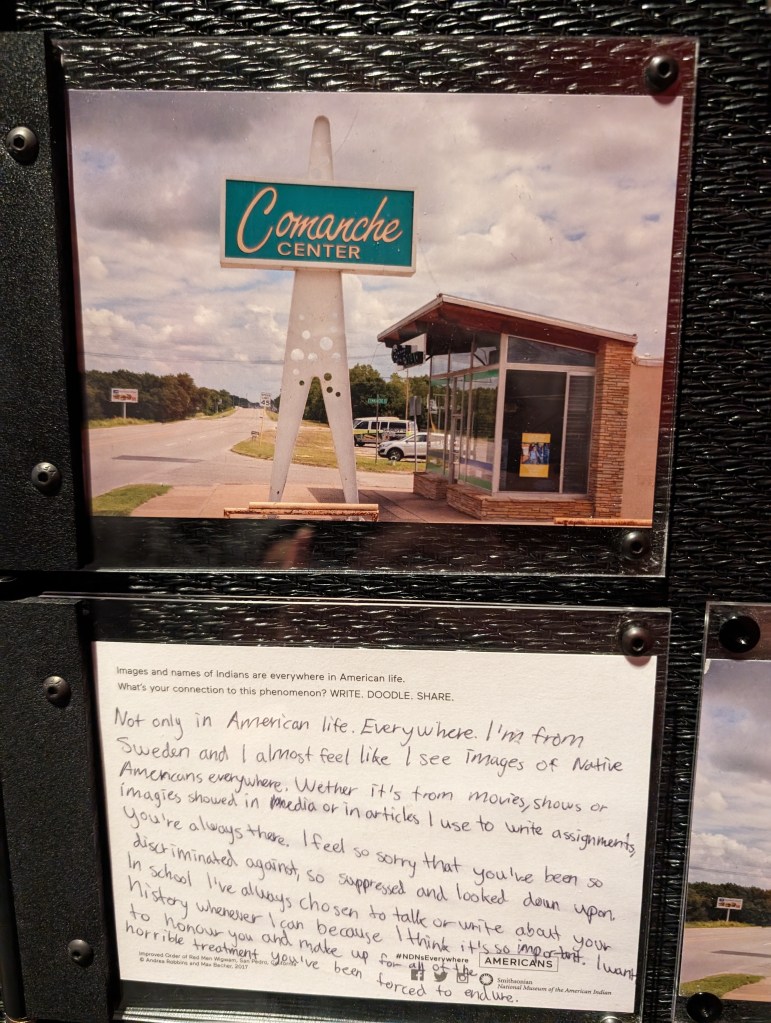 Comanche
CENTER
45
Images and names of Indians are everywhere in American life.
What's your connection to this phenomenon? WRITE. DOODLE. SHARE.
Not only in American life. Everywhere. I'm from
Sweden and I almost feel like I see images of Native
Americans everywhere. Wether it's from movies, shows or
imagies showed in media or in articles I use to write assignments,
you're always there. I feel so sorry that you've been so
discriminated against, so suppressed and looked down upon.
In school I've always chosen to talk or write about your
history whenever I can because I think it's so important. I want
to honour you and make up for all of the
horrible treatment you've been forced to endure.
#NDNsEverywhere
AMERICANS
Improved Order of Red Men Wigwam, San Pedro,
© Andrea Robbins and Max Becher, 2017
Smithsonian
National Museum of the American Indian